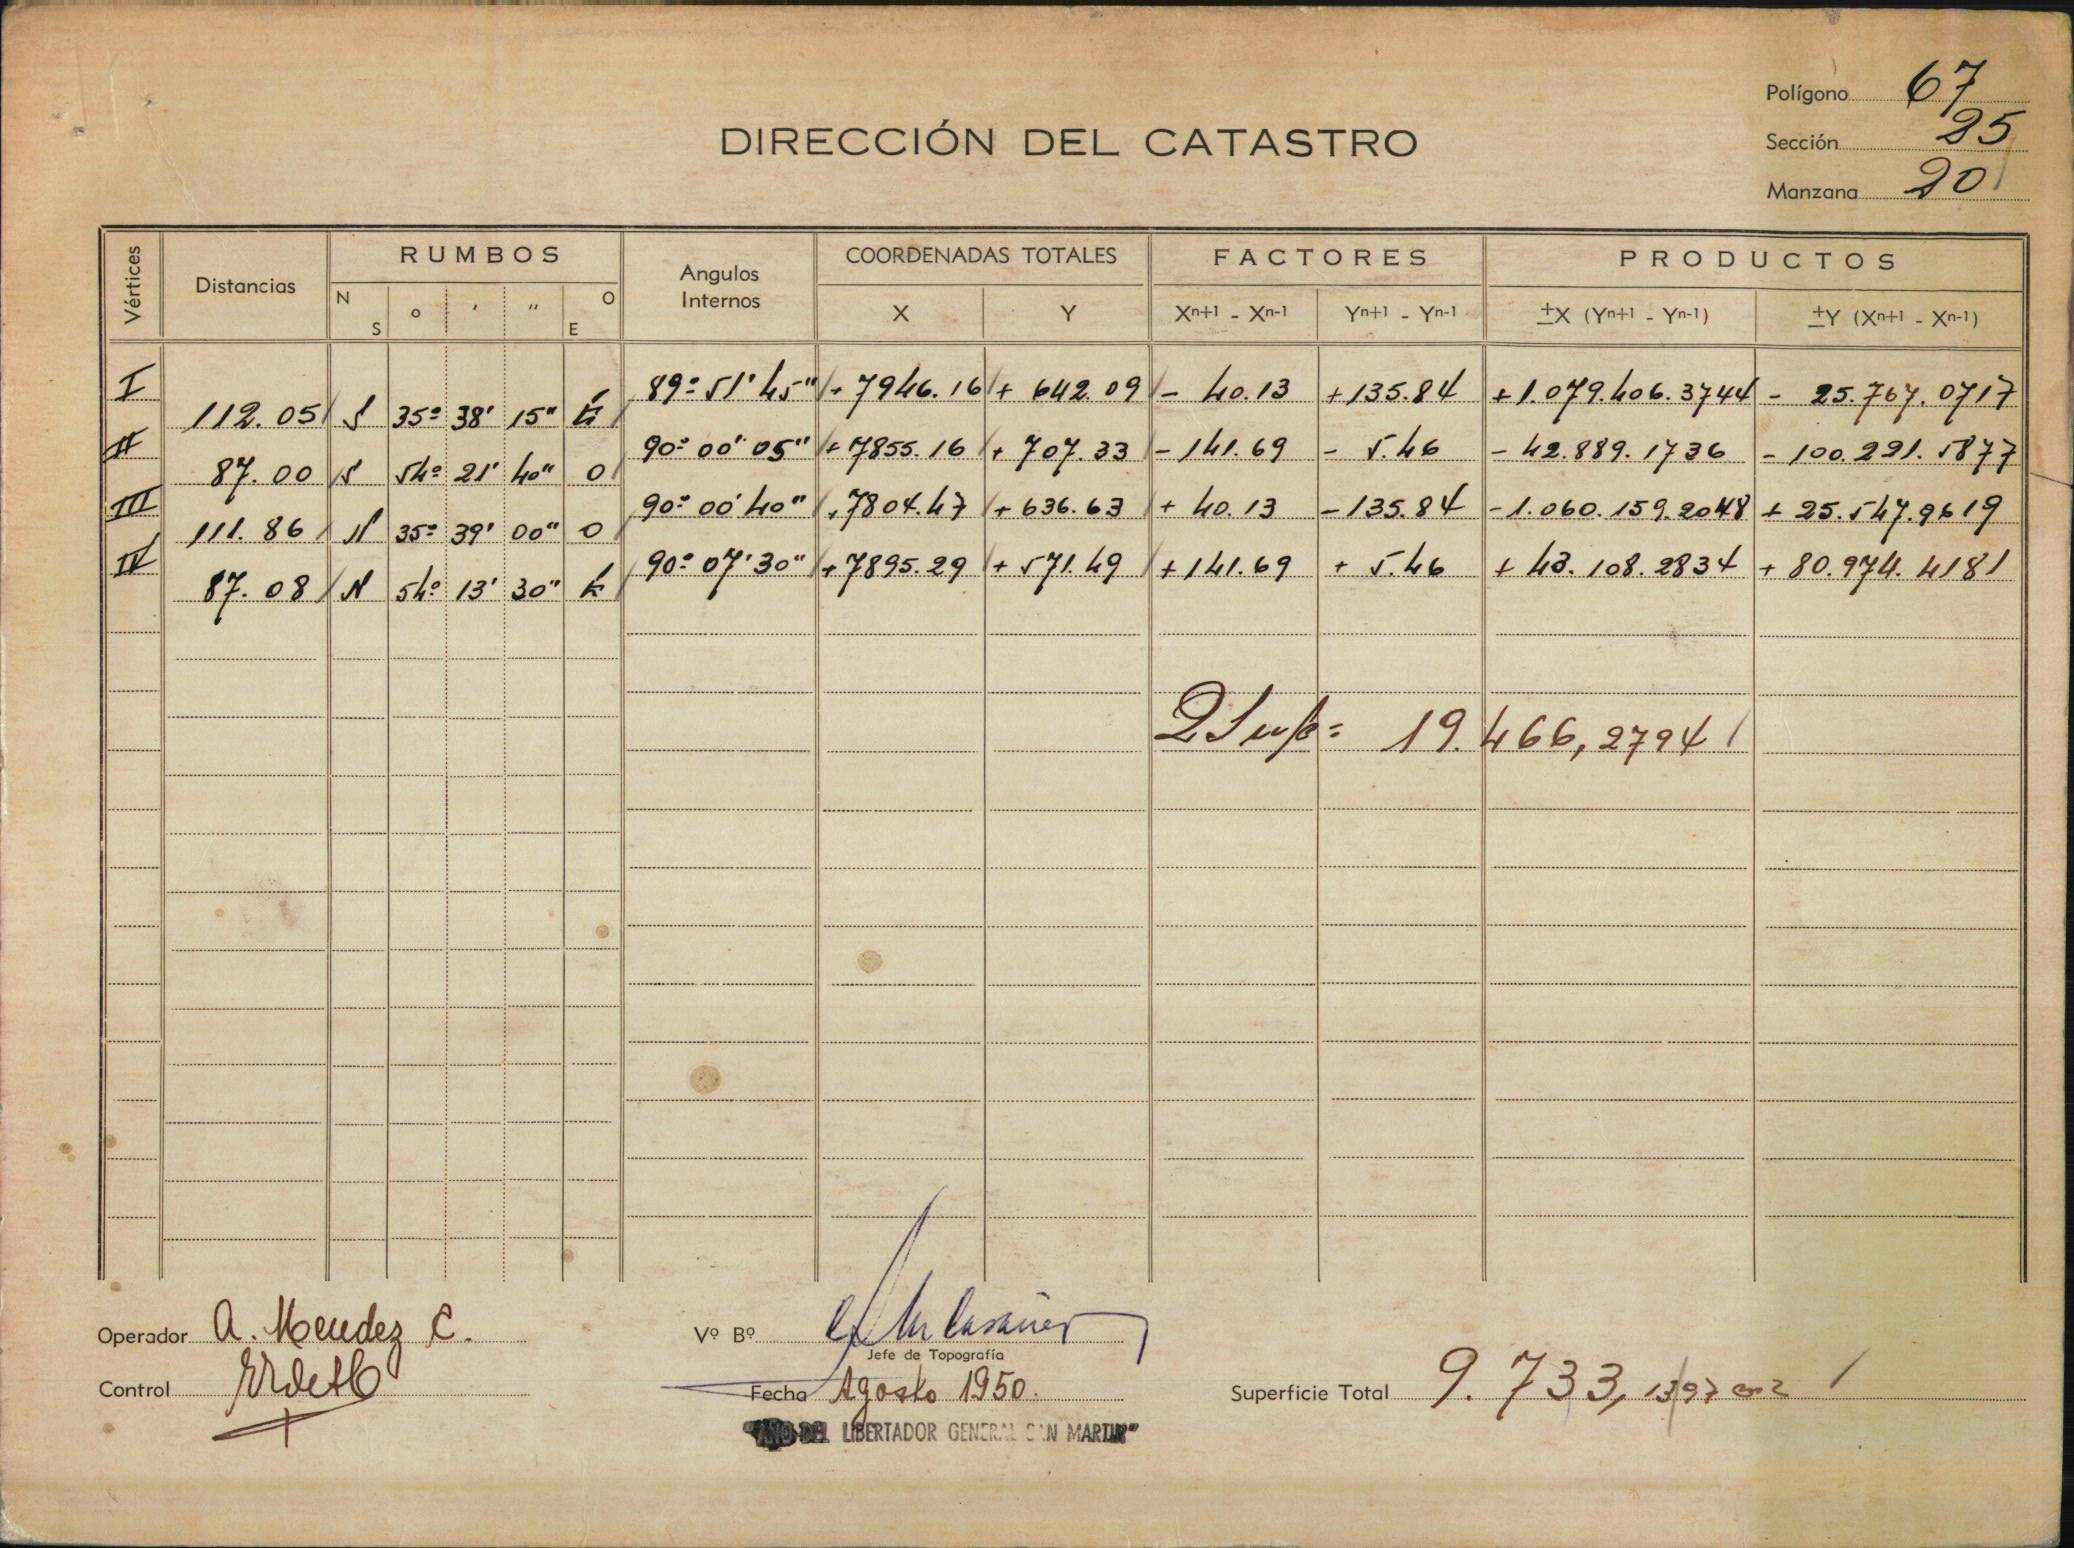 Polígono 67
DIRECCIÓN DEL CATASTRO
Sección 25
Manzana 20
Vértices Distancias RUMBOS Angulos Internos COORDENADAS TOTALES FACTORES PRODUCTOS
N S o ' " O E X Y Xn+1 - Xn-1 Yn+1 - Yn-1 ±X (Yn+1 - Yn-1) ±Y (Xn+1 - Xn-1)
I 89º 51' 45" + 7946.16 + 642.09 - 40.13 +135.84 +1.079.406.3744 - 25.767.0717
112.05 S 35º 38' 15" E
II 90º 00' 05" +7855.16 + 707.33 -141.69 - 5.46 - 42.889.1736 - 100.221.5877
87.00 S 54º 21' 40" O
III 90º 00' 40" +7804.47 + 636.63 + 40.13 -135.84 -1.060.159.2048 + 25.547.9619
111.86 N 35º 39' 00" O
IV 90º 07' 30" +7895.29 + 571.49 +141.69 + 5.46 + 43.108.2834 + 80.974.4181
87.08 N 54º 13' 30" E
2 Sup= 19.466,2794
Operador A. Mendez C.
Vº Bº
Jefe de Topografía
Control
Fecha Agosto 1950.
Superficie Total 9.733,1397 m2
"AÑO DEL LIBERTADOR GENERAL SAN MARTIN"